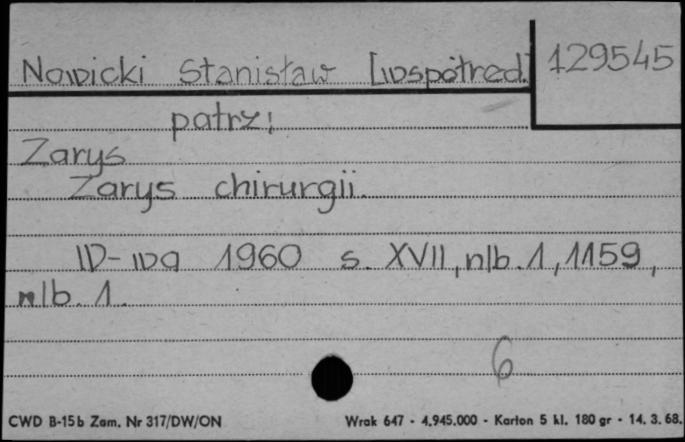 Nowicki Stanisław [współred.] 129545
patrz:
Zarys
Zarys chirurgii.
W-wa 1960 s. XVII, nlb. 1, 1159,
nlb. 1.
6
CWD B-15b Zam. Nr 317/DW/ON Wrak 647 - 4.945.000 - Karton 5 kl. 180 gr - 14. 3. 68.